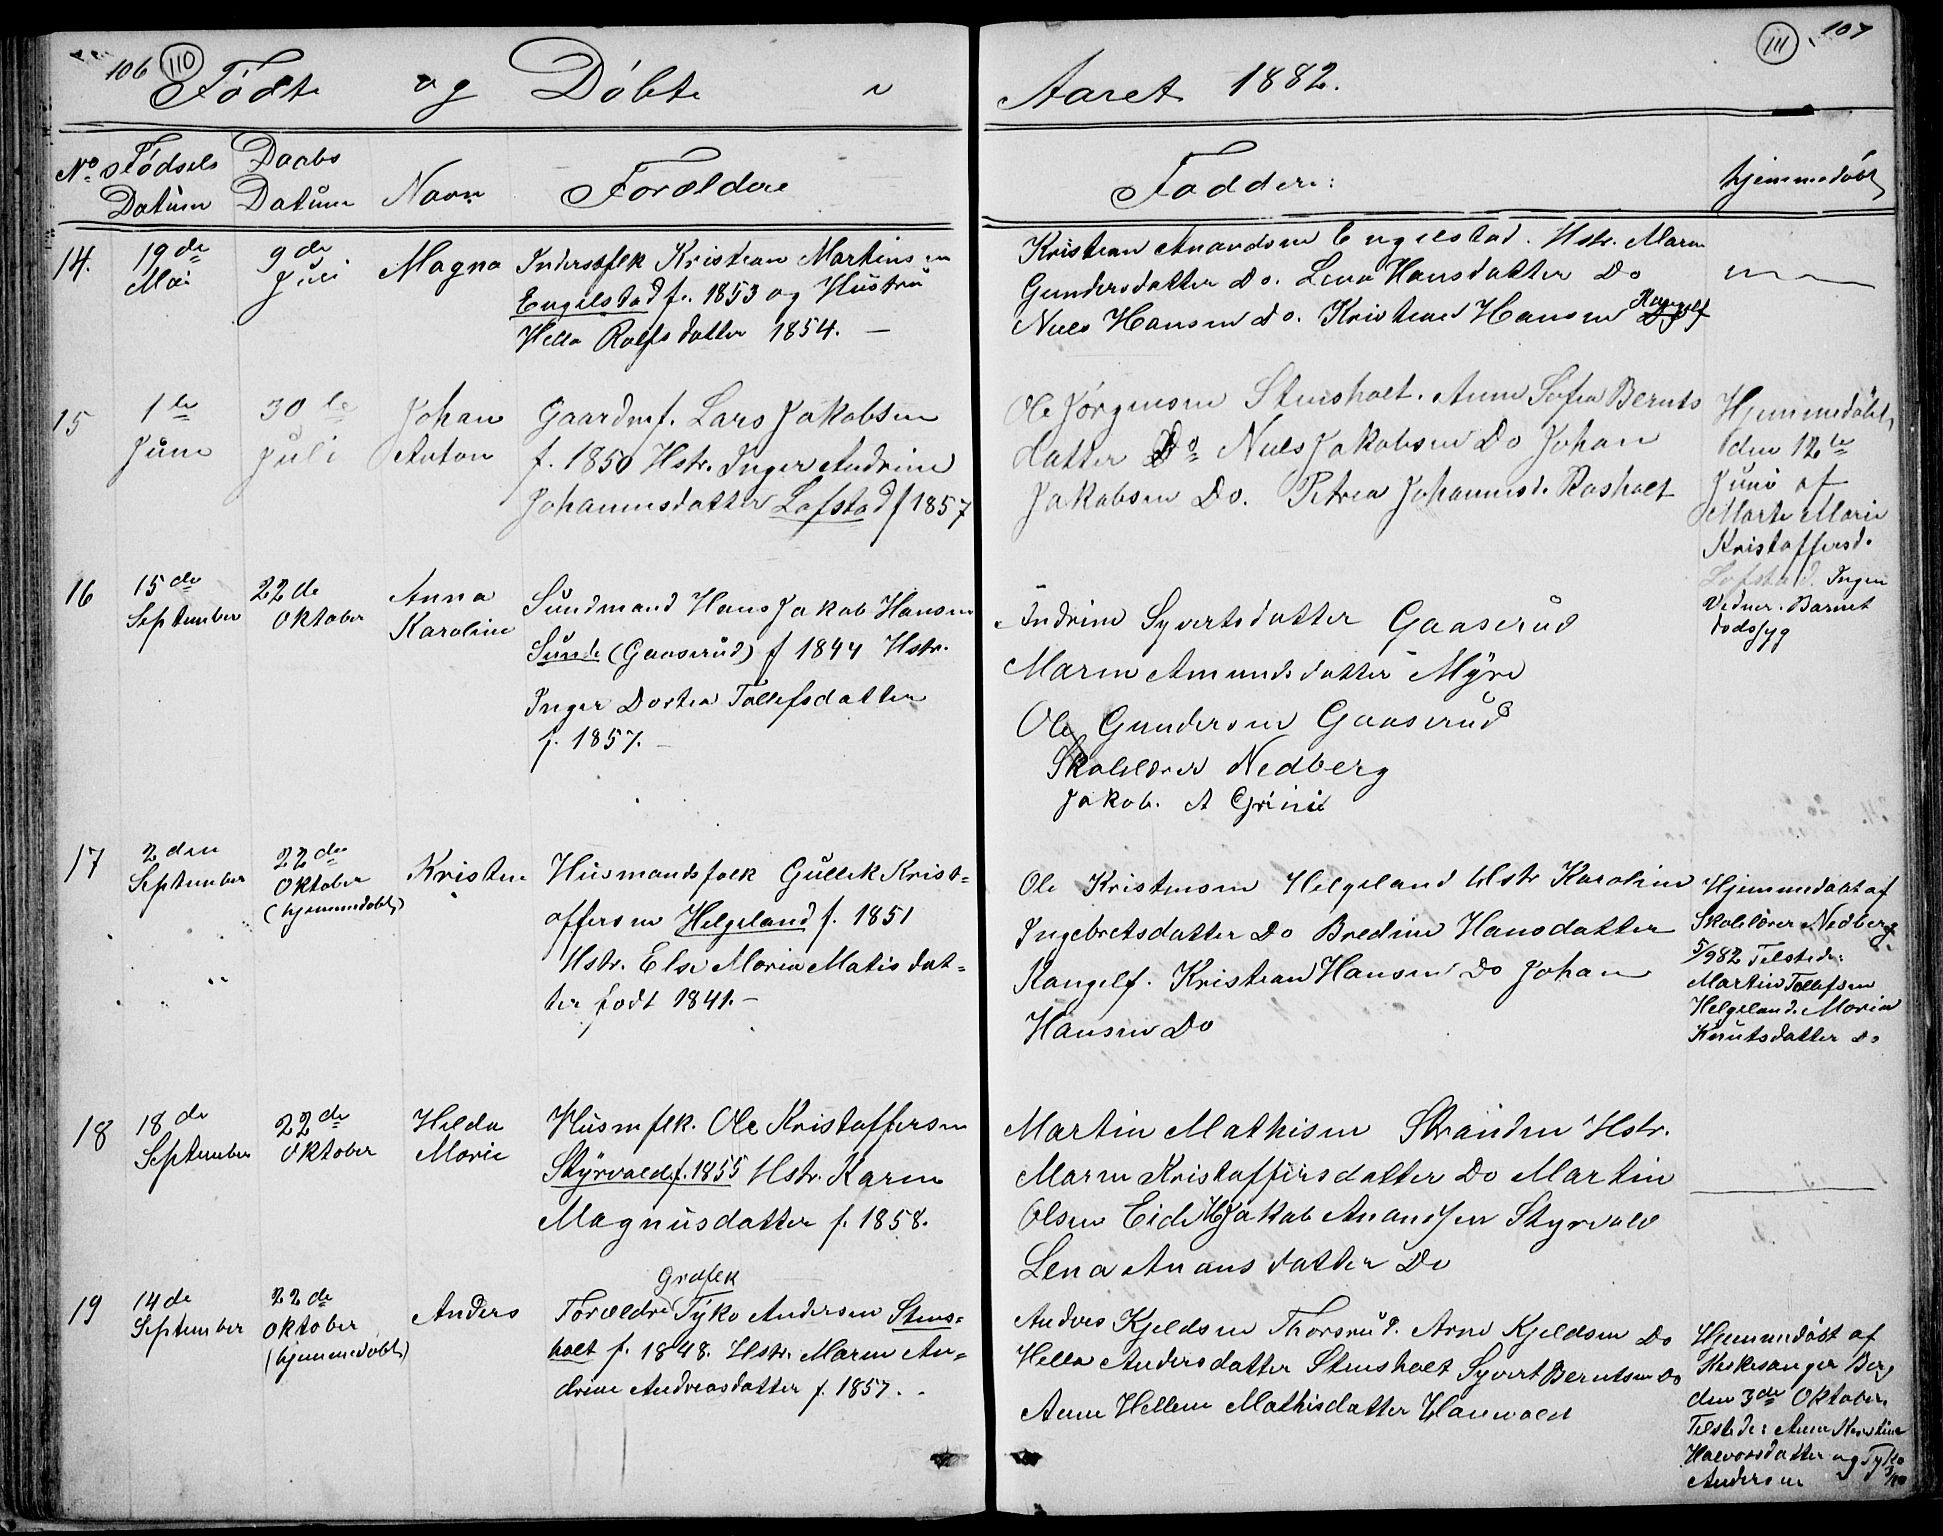 106 110 Födte og Döbte i
Aaret 1882. 111 107
No Födsels Datum Daabs Datum Navn Foroldre
Faddere: hjemmedöbt
14. 19de Mai 9de Juli Magna
Inderstflk Kristian Martinsen
Engelstad f. 1853 og Hustru
Hella Rolfsdatter 1854. —
Kristian Anandsen Engelstad. Hstr. Maren
Gundersdatter Do. Lena Hansdatter Do
Niels Hansen do. Kristian Hansen Kangelf
15 1te Juni 30te Juli Johan Anton
Gaardmf. Lars Jakobsen
f. 1850 Hstr. Inger Andrine
Johannesdatter Lofstad f 1857
Ole Jörgensen Stensholt. Anne Sofia Bernts
datter Do Niels Jakobsen Do Johan
Jakobsen Do. Petrea Johannesd. Rasholt
Hjemmedöbt
den 12te
Juni af
Marte Marie
Kristoffersd.
Lofstad. Ingen
Vedner. Barnet
dodssyg
16 15de September 22de Oktober Anna Karoline
Sundmand Hans Jakob Hansen
Sunde (Gaaserud) f 1844 Hstr.
Inger Dortea Tollefsdatter
f. 1857. —
Andrine Syvertsdatter Gaaserud
Maren Amundsdatter Myre
Ole Gundersen Gaaserud
Skolelærer Nedberg
Jakob. A Grini
17 2den September 22de Oktober (hjemmedöbt) Kristen
Husmandsfolk Gullek Krist=
offersen Helgeland f. 1851
Hstr. Else Maria Matisdat=
ter födt 1841. —
Ole Kristensen Helgeland Hstr Karoline
Ingebretsdatter Do Bredine Hansdatter
Kangelf. Kristian Hansen Do Johan
Hansen Do
Hjemmedöbt af
Skolelærer Nedberg
5/9 82 Tilstede:
Martin Tollefsen
Helgeland. Maria
Knutsdatter do
18 18de September 22de Oktober Helda Marie
Husmflk. Ole Kristoffersen
Styrvold f. 1855 Hstr. Karen
Magnusdatter f. 1858.
Martin Mathisen Stranden Hstr.
Maren Kristoffersdatter Do Martin
Olsen Eid Jakob Anansen Styrvold
Lena Anansdatter Do
19 14de September 22de Oktober (hjemmedöbt) Anders
Grdflk
Foroeldre Tyko Andersen Stens=
holt f. 1848. Hstr. Maren An=
drine Andreasdatter f. 1857.
Andres Kjeldsen Thorsrud. Arne Kjeldsen Do
Hella Andersdatter Stensholt Syvert Berntsen Do
Anne Hellene Mathisdatter Hanevold
Hjemmedöbt af
Kirkesanger Berg
den 3de Oktober.
Tilstede: Anne Kirstine
Halvorsdatter og Tyko
Andersen